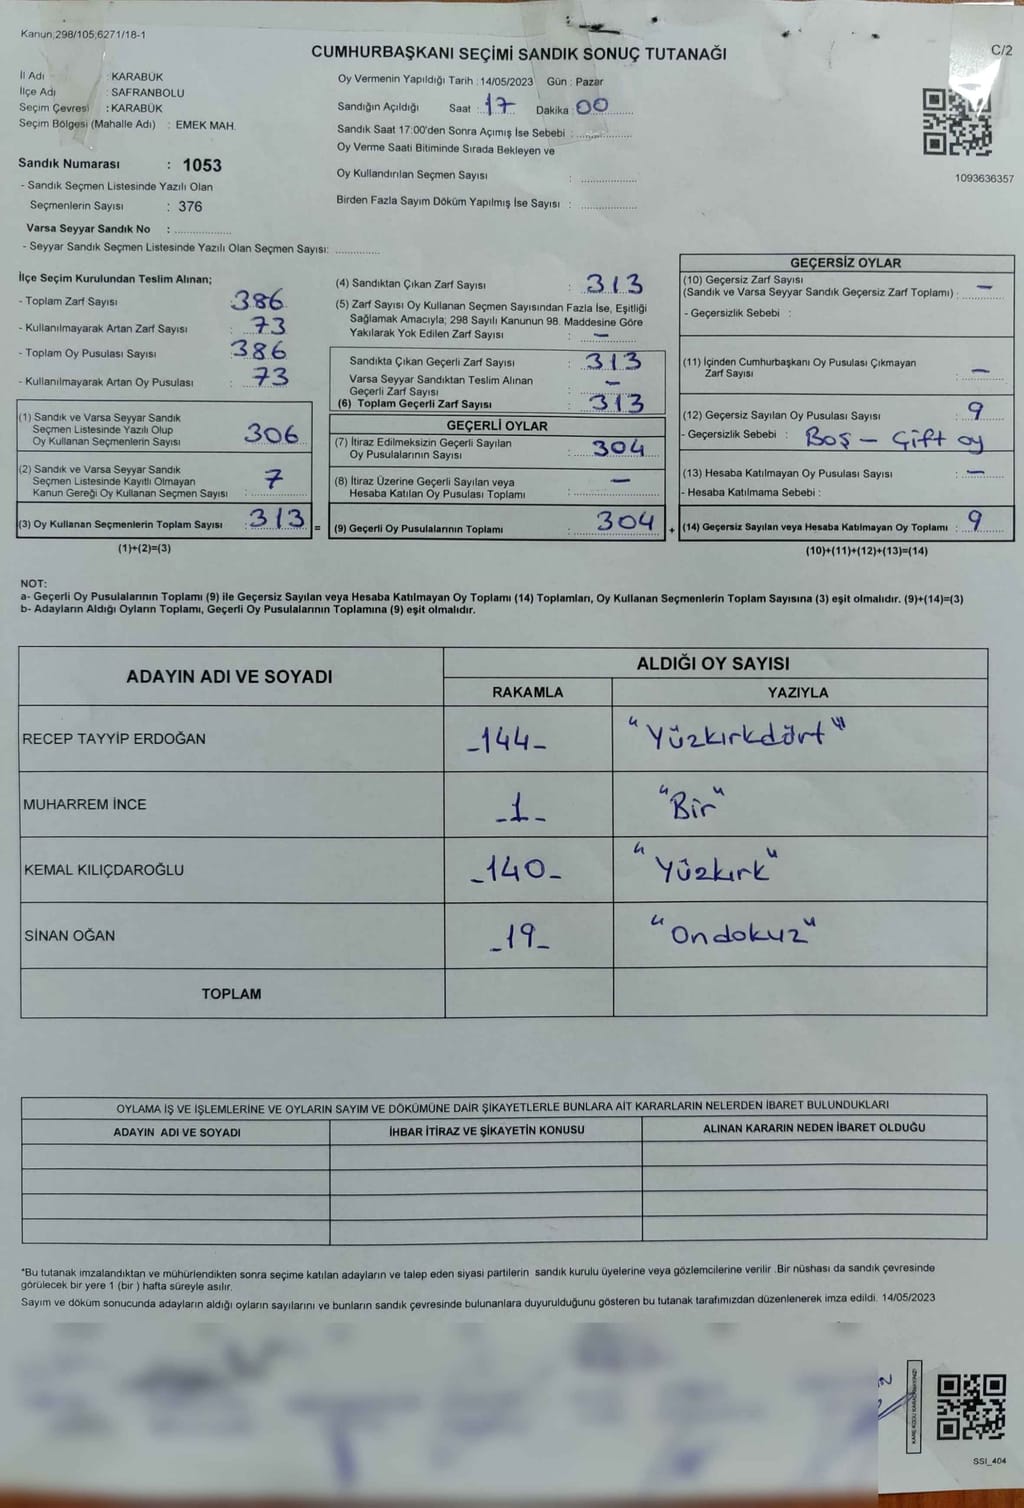 Kanun;298/105;6271/18-1
CUMHURBAŞKANI SEÇİMİ SANDIK SONUÇ TUTANAĞI
C/2
İl Adı : KARABÜK
İlçe Adı : SAFRANBOLU
Seçim Çevresi : KARABÜK
Seçim Bölgesi (Mahalle Adı) : EMEK MAH.
Sandık Numarası : 1053
- Sandık Seçmen Listesinde Yazılı Olan
Seçmenlerin Sayısı : 376
Varsa Seyyar Sandık No : ..............
- Seyyar Sandık Seçmen Listesinde Yazılı Olan Seçmen Sayısı: ............
Oy Vermenin Yapıldığı Tarih : 14/05/2023 Gün : Pazar
Sandığın Açıldığı Saat : 17 Dakika : 00
Sandık Saat 17:00'den Sonra Açımış İse Sebebi : ..............
Oy Verme Saati Bitiminde Sırada Bekleyen ve
Oy Kullandırılan Seçmen Sayısı : ..............
Birden Fazla Sayım Döküm Yapılmış İse Sayısı : ..............
1093636357
İlçe Seçim Kurulundan Teslim Alınan;
- Toplam Zarf Sayısı : 386
- Kullanılmayarak Artan Zarf Sayısı : 73
- Toplam Oy Pusulası Sayısı : 386
- Kullanılmayarak Artan Oy Pusulası : 73
(1) Sandık ve Varsa Seyyar Sandık
Seçmen Listesinde Yazılı Olup
Oy Kullanan Seçmenlerin Sayısı : 306
(2) Sandık ve Varsa Seyyar Sandık
Seçmen Listesinde Kayıtlı Olmayan
Kanun Gereği Oy Kullanan Seçmen Sayısı : 7
(3) Oy Kullanan Seçmenlerin Toplam Sayısı : 313
(1)+(2)=(3)
(4) Sandıktan Çıkan Zarf Sayısı : 313
(5) Zarf Sayısı Oy Kullanan Seçmen Sayısından Fazla İse, Eşitliği
Sağlamak Amacıyla; 298 Sayılı Kanunun 98. Maddesine Göre
Yakılarak Yok Edilen Zarf Sayısı : —
Sandıkta Çıkan Geçerli Zarf Sayısı : 313
Varsa Seyyar Sandıktan Teslim Alınan
Geçerli Zarf Sayısı : —
(6) Toplam Geçerli Zarf Sayısı : 313
GEÇERLİ OYLAR
(7) İtiraz Edilmeksizin Geçerli Sayılan
Oy Pusulalarının Sayısı : 304
(8) İtiraz Üzerine Geçerli Sayılan veya
Hesaba Katılan Oy Pusulası Toplamı : —
= (9) Geçerli Oy Pusulalarının Toplamı : 304 +
GEÇERSİZ OYLAR
(10) Geçersiz Zarf Sayısı
(Sandık ve Varsa Seyyar Sandık Geçersiz Zarf Toplamı) : —
- Geçersizlik Sebebi :
(11) İçinden Cumhurbaşkanı Oy Pusulası Çıkmayan
Zarf Sayısı : —
(12) Geçersiz Sayılan Oy Pusulası Sayısı : 9
- Geçersizlik Sebebi : Boş – Çift oy
(13) Hesaba Katılmayan Oy Pusulası Sayısı : —
- Hesaba Katılmama Sebebi :
(14) Geçersiz Sayılan veya Hesaba Katılmayan Oy Toplamı : 9
(10)+(11)+(12)+(13)=(14)
NOT:
a- Geçerli Oy Pusulasının Toplamı (9) ile Geçersiz Sayılan veya Hesaba Katılmayan Oy Toplamı (14) Toplamları, Oy Kullanan Seçmenlerin Toplam Sayısına (3) eşit olmalıdır. (9)+(14)=(3)
b- Adayların Aldığı Oyların Toplamı, Geçerli Oy Pusulalarının Toplamına (9) eşit olmalıdır.
ADAYIN ADI VE SOYADI ALDIĞI OY SAYISI
RAKAMLA YAZIYLA
RECEP TAYYİP ERDOĞAN -144- "Yüzkırkdört"
MUHARREM İNCE -1- "Bir"
KEMAL KILIÇDAROĞLU -140- "Yüzkırk"
SİNAN OĞAN -19- "Ondokuz"
TOPLAM
OYLAMA İŞ VE İŞLEMLERİNE VE OYLARIN SAYIM VE DÖKÜMÜNE DAİR ŞİKAYETLERLE BUNLARA AİT KARARLARIN NELERDEN İBARET BULUNDUKLARI
ADAYIN ADI VE SOYADI İHBAR İTİRAZ VE ŞİKAYETİN KONUSU ALINAN KARARIN NEDEN İBARET OLDUĞU
*Bu tutanak imzalandıktan ve mühürlendikten sonra seçime katılan adayların ve talep eden siyasi partilerin sandık kurulu üyelerine veya gözlemcilerine verilir .Bir nüshası da sandık çevresinde
görülecek bir yere 1 (bir ) hafta süreyle asılır.
Sayım ve döküm sonucunda adayların aldığı oyların sayılarını ve bunların sandık çevresinde bulunanlara duyurulduğunu gösteren bu tutanak tarafımızdan düzenlenerek imza edildi. 14/05/2023
SSI_404